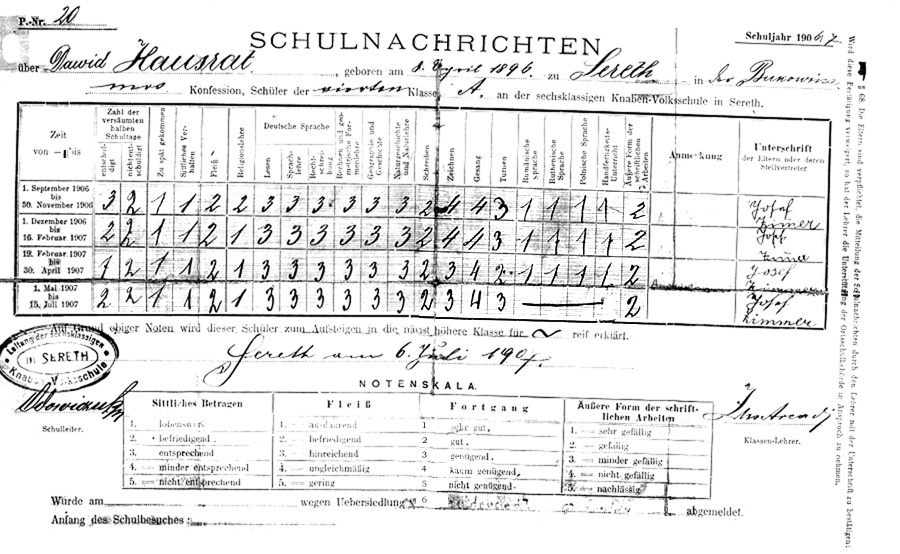 P.-Nr. 20
SCHULNACHRICHTEN
Schuljahr 1906/7
über Dawid Hausrat, geboren am 8. April 1896 zu Sereth in der Bukowina
mos Konfession, Schüler der vierten Klasse A. an der sechsklassigen Knaben-Volksschule in Sereth.
Zeit von — bis
Zahl der versäumten halben Schultage
entschuldigt
nichtentschuldigt
Zu spät gekommen
Sittliches Verhalten
Fleiß
Religionslehre
Deutsche Sprache
Lesen
Sprachlehre
Rechtschreibung
Rechnen und geometrische Formenlehre
Geographie und Geschichte
Naturgeschichte und Naturlehre
Schreiben
Zeichnen
Gesang
Turnen
Rumänische Sprache
Ruthenische Sprache
Polnische Sprache
Handfertigkeits-Unterricht
Äußere Form der schriftlichen Arbeiten
Anmerkung
Unterschrift der Eltern oder deren Stellvertreter
1. September 1906 bis 30. November 1906 3 2 1 1 2 2 3 3 3 3 3 3 2 4 4 3 1 1 1 1 2 Josef Zimer
1. Dezember 1906 bis 16. Februar 1907 2 2 1 1 2 1 3 3 3 3 3 3 2 4 4 3 1 1 1 1 2
19. Februar 1907 bis 30. April 1907 2 1 1 2 1 3 3 3 3 3 3 2 3 4 2 1 1 1 1 2 Josef Zimmer
1. Mai 1907 bis 15. Juli 1907 2 2 1 1 2 1 3 3 3 3 3 3 2 3 4 3 — 2 Josef Zimmer
Auf Grund obiger Noten wird dieser Schüler zum Aufsteigen in die nächst höhere Klasse für reif erklärt.
Sereth am 6. Juli 1907.
Leitung der sechsklassigen Knaben Volksschule in SERETH
NOTENSKALA.
Schulleiter.
Klassen-Lehrer.
Sittliches Betragen
1. lobenswert
2. befriedigend
3. entsprechend
4. minder entsprechend
5. nicht entsprechend
Fleiß
1. ausdauernd
2. befriedigend
3. hinreichend
4. ungleichmäßig
5. gering
Fortgang
1 sehr gut,
2 gut.
3 genügend.
4 kaum genügend,
5 nicht genügend.
6
Äußere Form der schriftlichen Arbeiten
1. sehr gefällig
2. gefällig
3. minder gefällig
4. nicht gefällig
5. nachlässig
Würde am wegen Uebersiedlung abgemeldet.
Anfang des Schulbesuches: